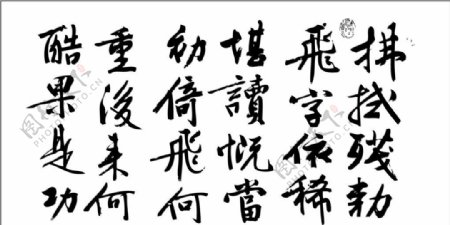 拂拭殘勅
飛字依稀
堪讀慨當
初倚飛何
重後來何
酷果是功